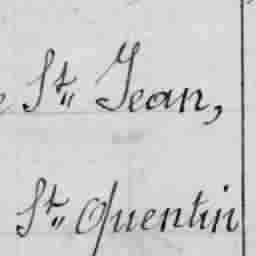 e St„ Jean,
St„ Quentin